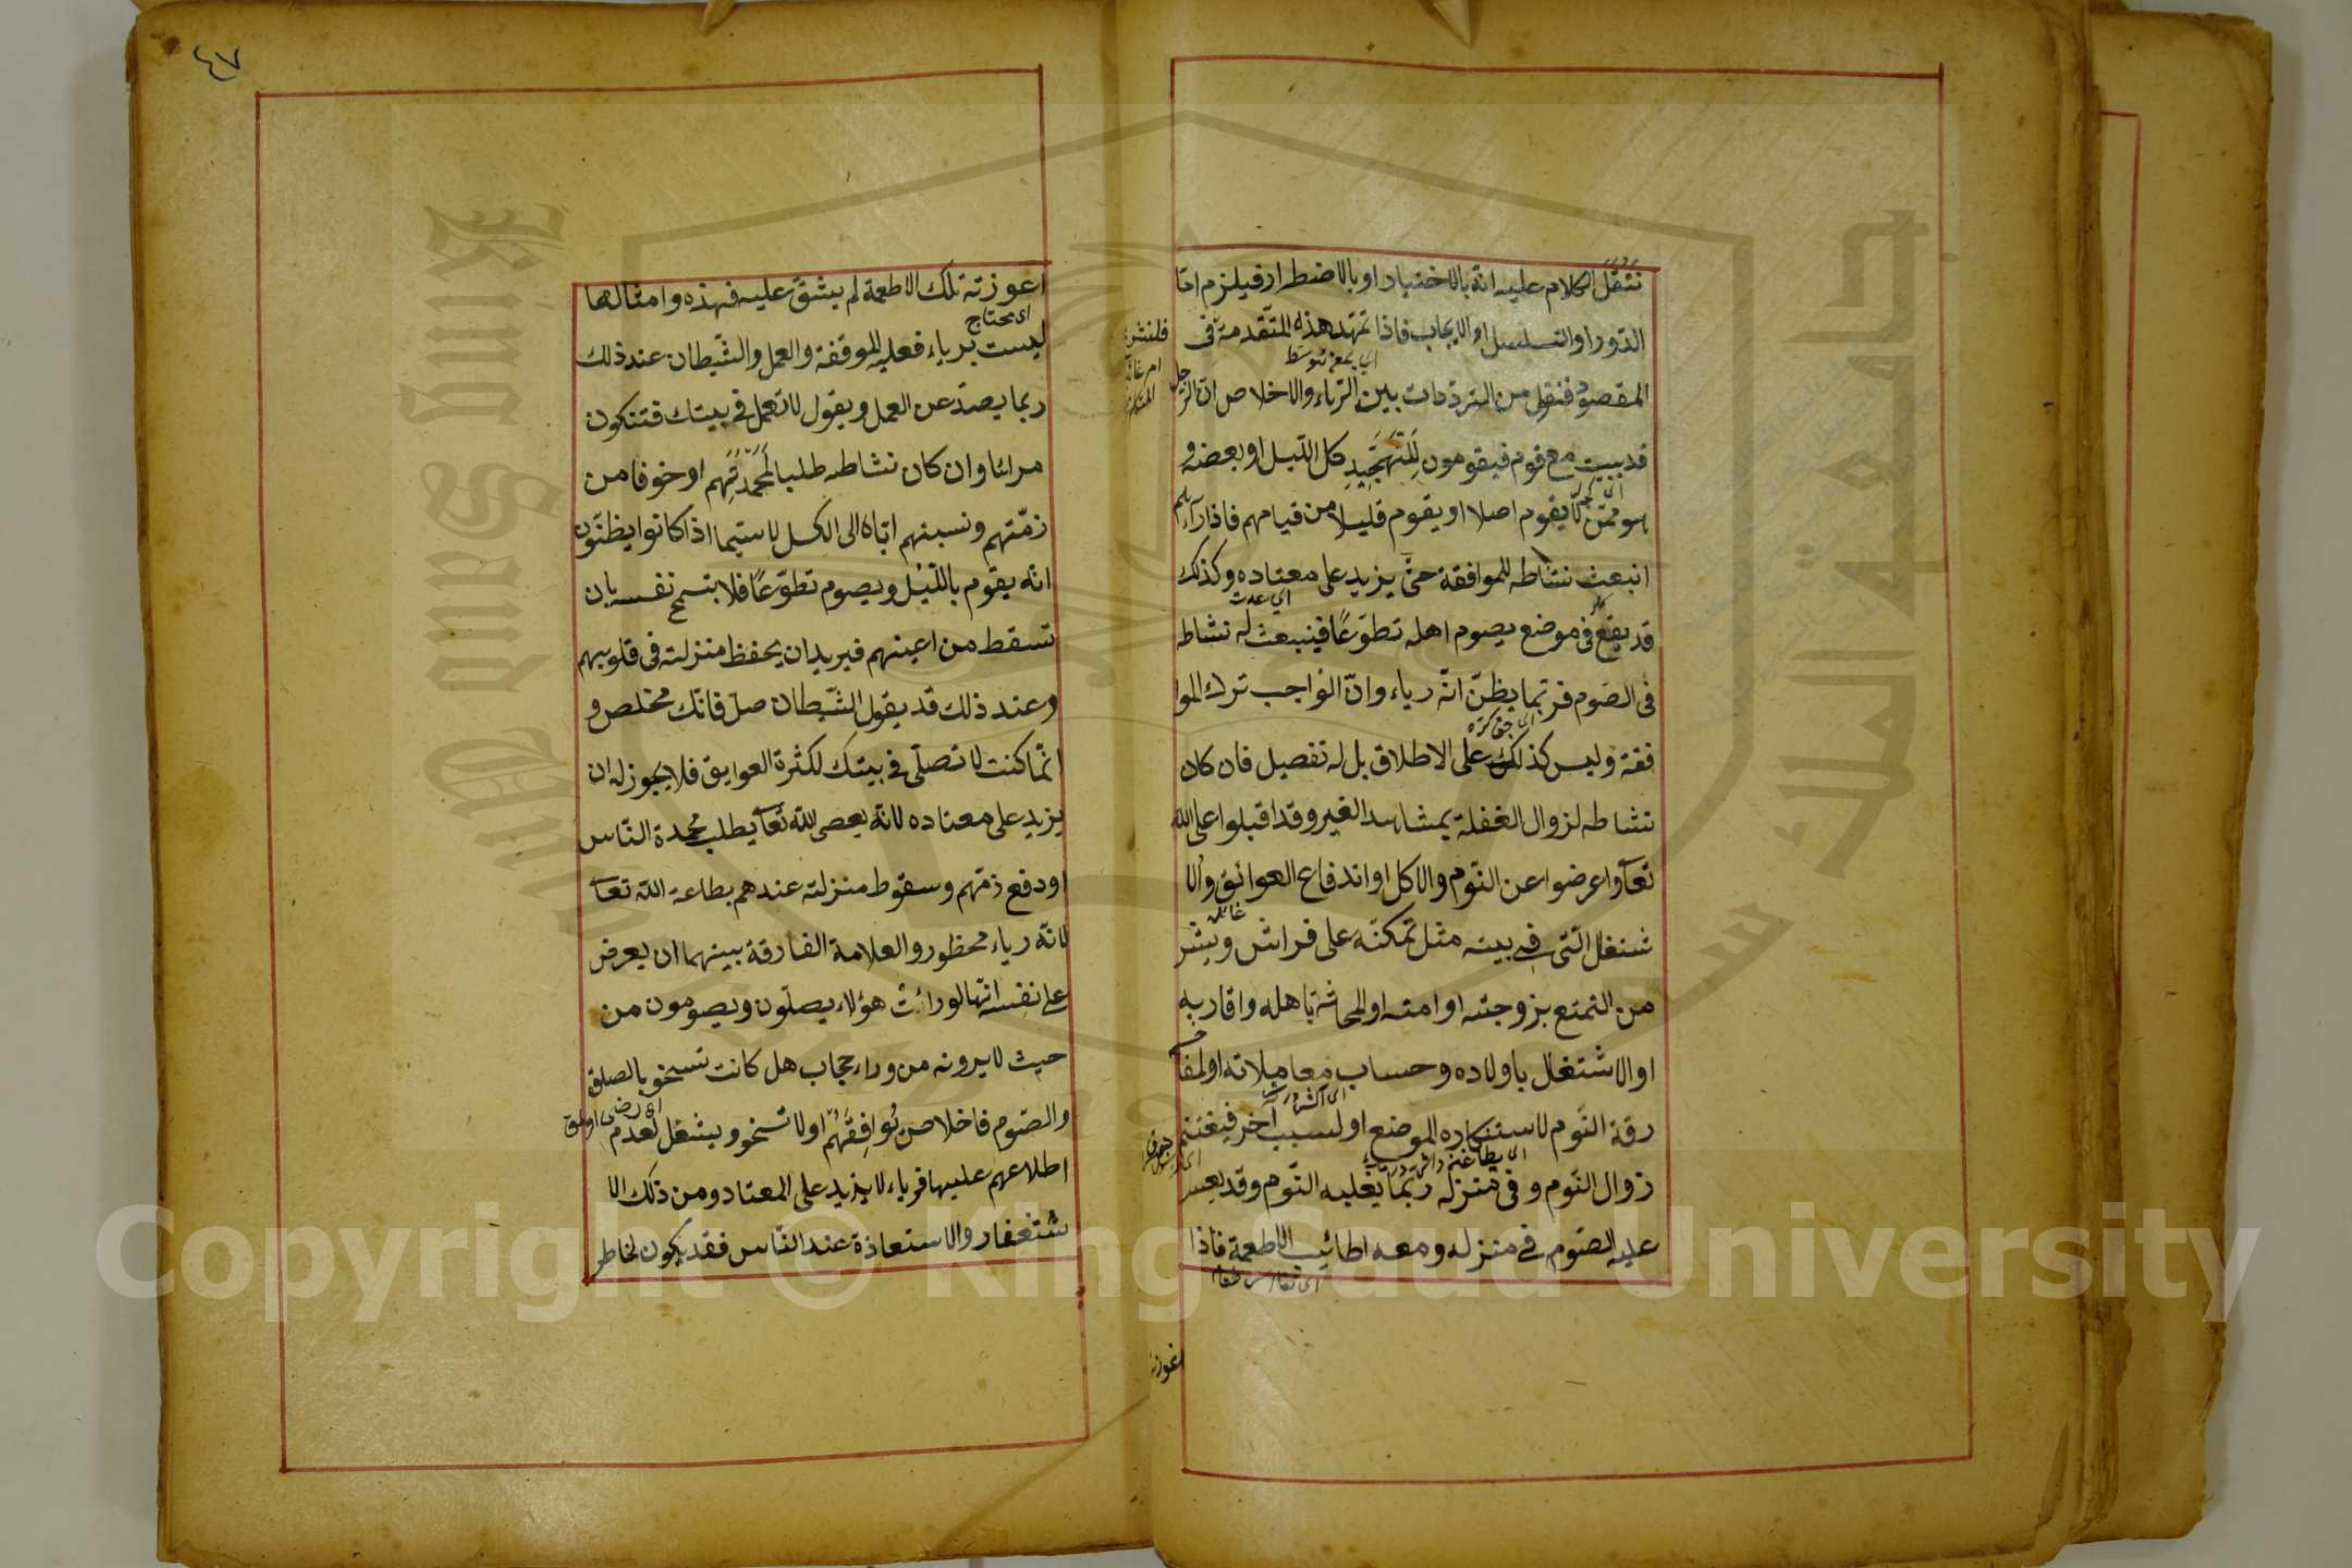 ننقل الكلام عليه انّه بالاختيار او بالاضطرار فيلزم امّا
الدّور او التسلسل او الايجاب فاذا تمهّد هذه المتقدمة فى
المقصود فنقول من المتردّدات بين الرّياء والاخلاص انّ الرّجل
قد يبيت مع قوم فيقومون لِلتَّهَجُّدِ كل اللّيل او بعضه و
هو ممّن لا يقوم اصلا او يقوم قليلا من قيامهم فاذا رآهم
انبعث نشاطه للموافقة حتّى يزيد على معتاده وكذلك
قد يقع فى موضع يصوم اهله تطوّعًا فينبعث له نشاط
فى الصّوم فربّما يظنّ انّه رياء وانّ الواجب ترك الموا
فقة وليس كذلك على الاطلاق بل له تفصيل فان كان
نشاطه لزوال الغفلة بمشاهدة الغير وقد اقبلوا على الله
تعآ واعرضوا عن النّوم والاكل او اندفاع العوائق والا
شتغال الّتى فى بيته مثل تمكّنه على فراش وثير
من التمتع بزوجته او امته او المحادثة باهله واقاربه
او الاشتغال باولاده وحساب معاملاته او لمفا
رقة النّوم لاستنكاره الموضع او لسبب آخر فيغتنم
زوال النّوم وفى منزله ربّما يغلبه النّوم وقد يعسر
عليه الصّوم فى منزله ومعه اطائب الاطعمة فاذا
اعوزته
٤٧
اعوزته تلك الاطعمة لم يشقّ عليه فهذه وامثالها
اى محتاج
ليست برياء فعليه الموافقة والعمل والشّيطان عند ذلك
ربما يصدّ عن العمل ويقول لا تعمل فى بيتك فتكون
مرائيا وان كان نشاطه طلبا لمحمدتهم او خوفا من
ذمّتهم ونسبتهم ايّاه الى الكسل لاسيّما اذا كانوا يظنّون
انّه يقوم باللّيل ويصوم تطوّعًا فلا تسمح نفسه بان
تسقط من اعينهم فيريد ان يحفظ منزلته فى قلوبهم
وعند ذلك قد يقول الشّيطان صلّ فانّك مخلص و
انّما كنت لا تصلّى فى بيتك لكثرة العوايق فلا يجوز له ان
يزيد على معتاده لانّه يعصى للّه تعآ بطلب محمدة النّاس
او دفع ذمّهم وسقوط منزلته عندهم بطاعة اللّه تعآ
لانّه رياء محظور والعلامة الفارقة بينهما ان يعرض
على نفسه انّها لو رأت هؤلاء يصلّون ويصومون من
حيث لا يرونه من وراء حجاب هل كانت تسخو بالصلوة
والصّوم فاخلاص نُوافِقُهُم او لا تسخو ويثقل لعدم
اطلاعهم عليها فرياء لا يزيد على المعتاد ومن ذلك الا
ستغفار والاستعاذة عند النّاس فقد يكون لخاطر
Copyright © King Saud University
King Saud University
جامعة الملك سعود